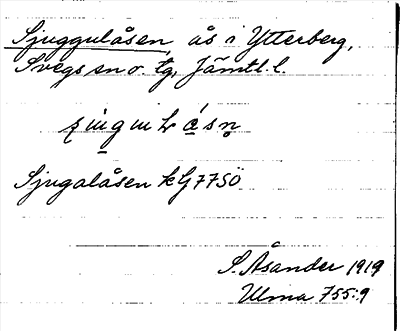 Sjuggulåsen, ås i Ytterberg,
Svegs sn o. tg, Jämtl. l.
Sjugalåsen kG77SÖ
S. Åsander 1919
Ulma 755:9